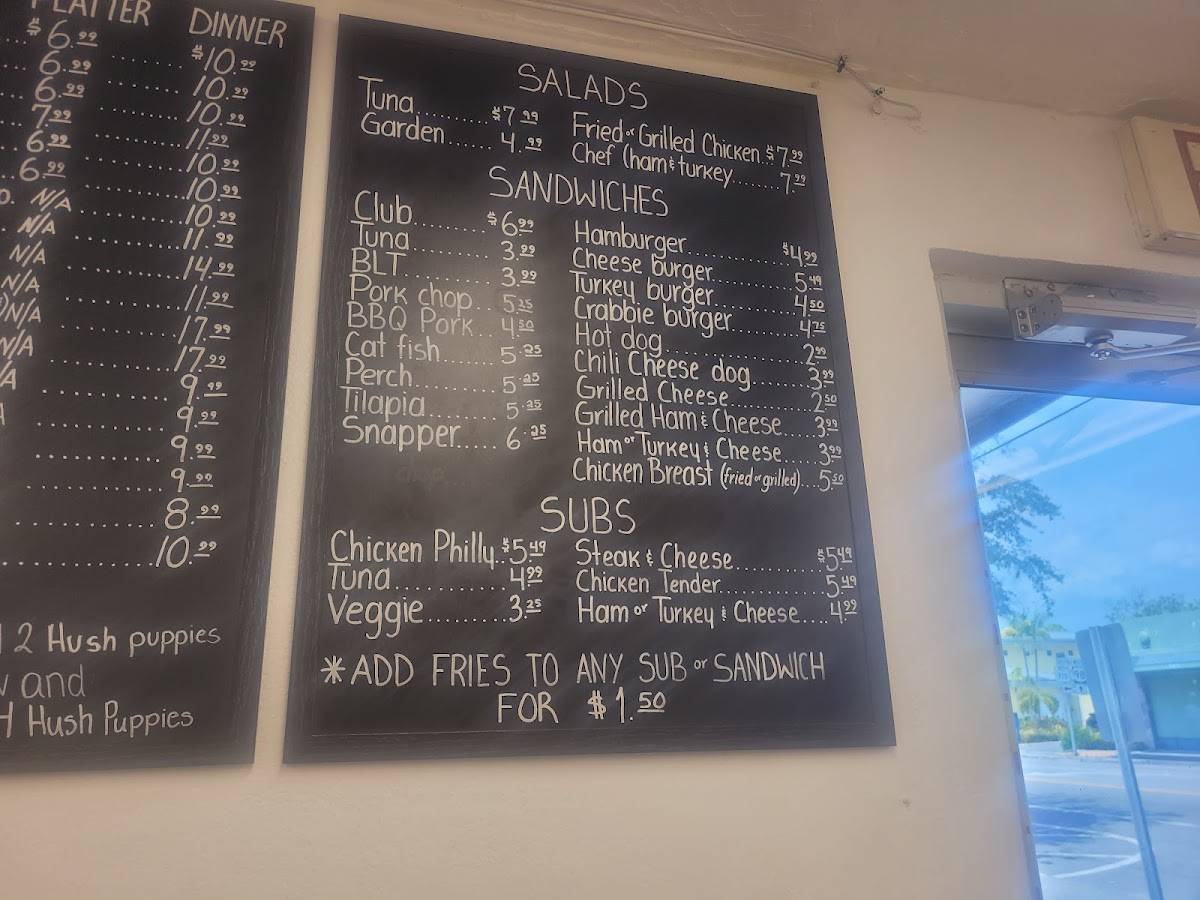 PLATTER DINNER
$6.99 $10.99
6.99 10.99
6.99 10.99
7.99 11.99
6.99 10.99
6.99 10.99
N/A 10.99
N/A 11.99
N/A 14.99
N/A 11.99
N/A 17.99
N/A 17.99
9.99
9.99
9.99
9.99
8.99
10.99
2 Hush puppies
and
Hush Puppies
SALADS
Tuna $7.99
Garden 4.99
Fried or Grilled Chicken $7.99
Chef (ham & turkey 7.99
SANDWICHES
Club $6.99
Tuna 3.99
BLT 3.99
Pork chop 5.25
BBQ Pork 4.50
Cat fish 5.25
Perch 5.25
Tilapia 5.25
Snapper 6.25
Hamburger $4.99
Cheese burger 5.49
Turkey burger 4.50
Crabbie burger 4.75
Hot dog 2.99
Chili Cheese dog 3.99
Grilled Cheese 2.50
Grilled Ham & Cheese 3.99
Ham or Turkey & Cheese 3.99
Chicken Breast (fried or grilled) 5.50
SUBS
Chicken Philly $5.49
Tuna 4.99
Veggie 3.25
Steak & Cheese $5.49
Chicken Tender 5.49
Ham or Turkey & Cheese 4.99
*ADD FRIES TO ANY SUB or SANDWICH
FOR $1.50